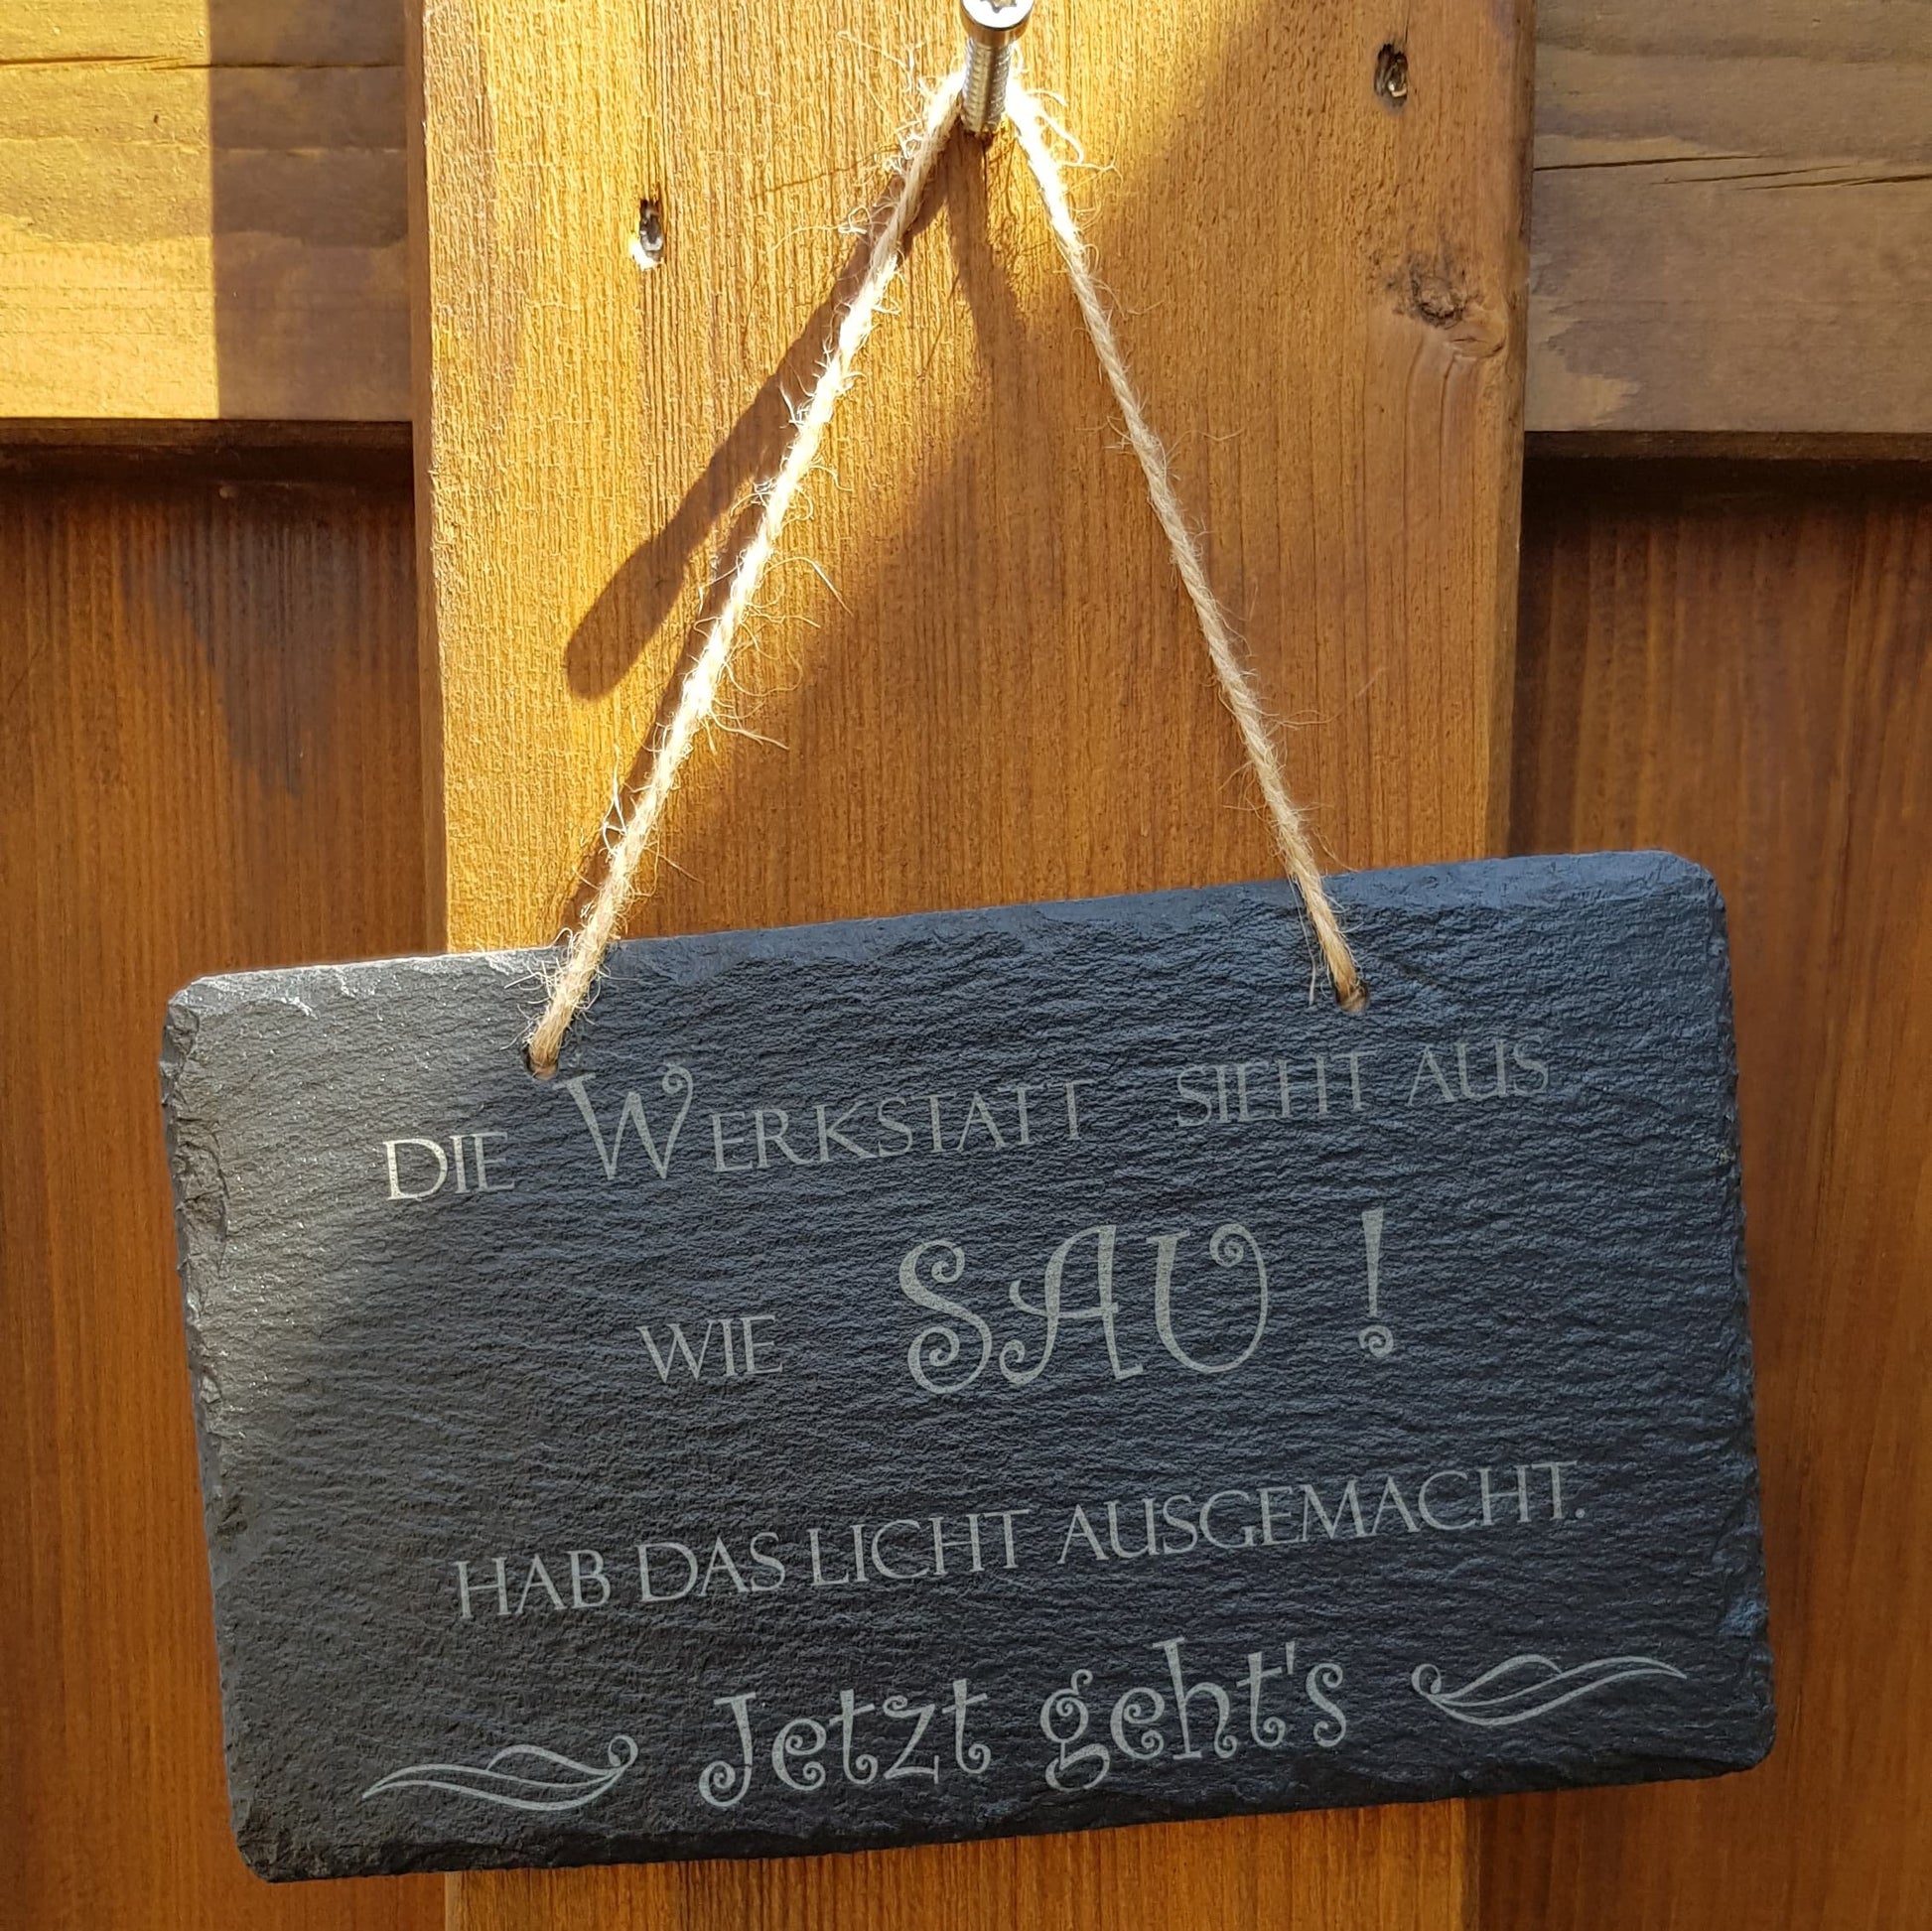 DIE WERKSTATT SIEHT AUS
WIE SAU !
HAB DAS LICHT AUSGEMACHT.
Jetzt geht's